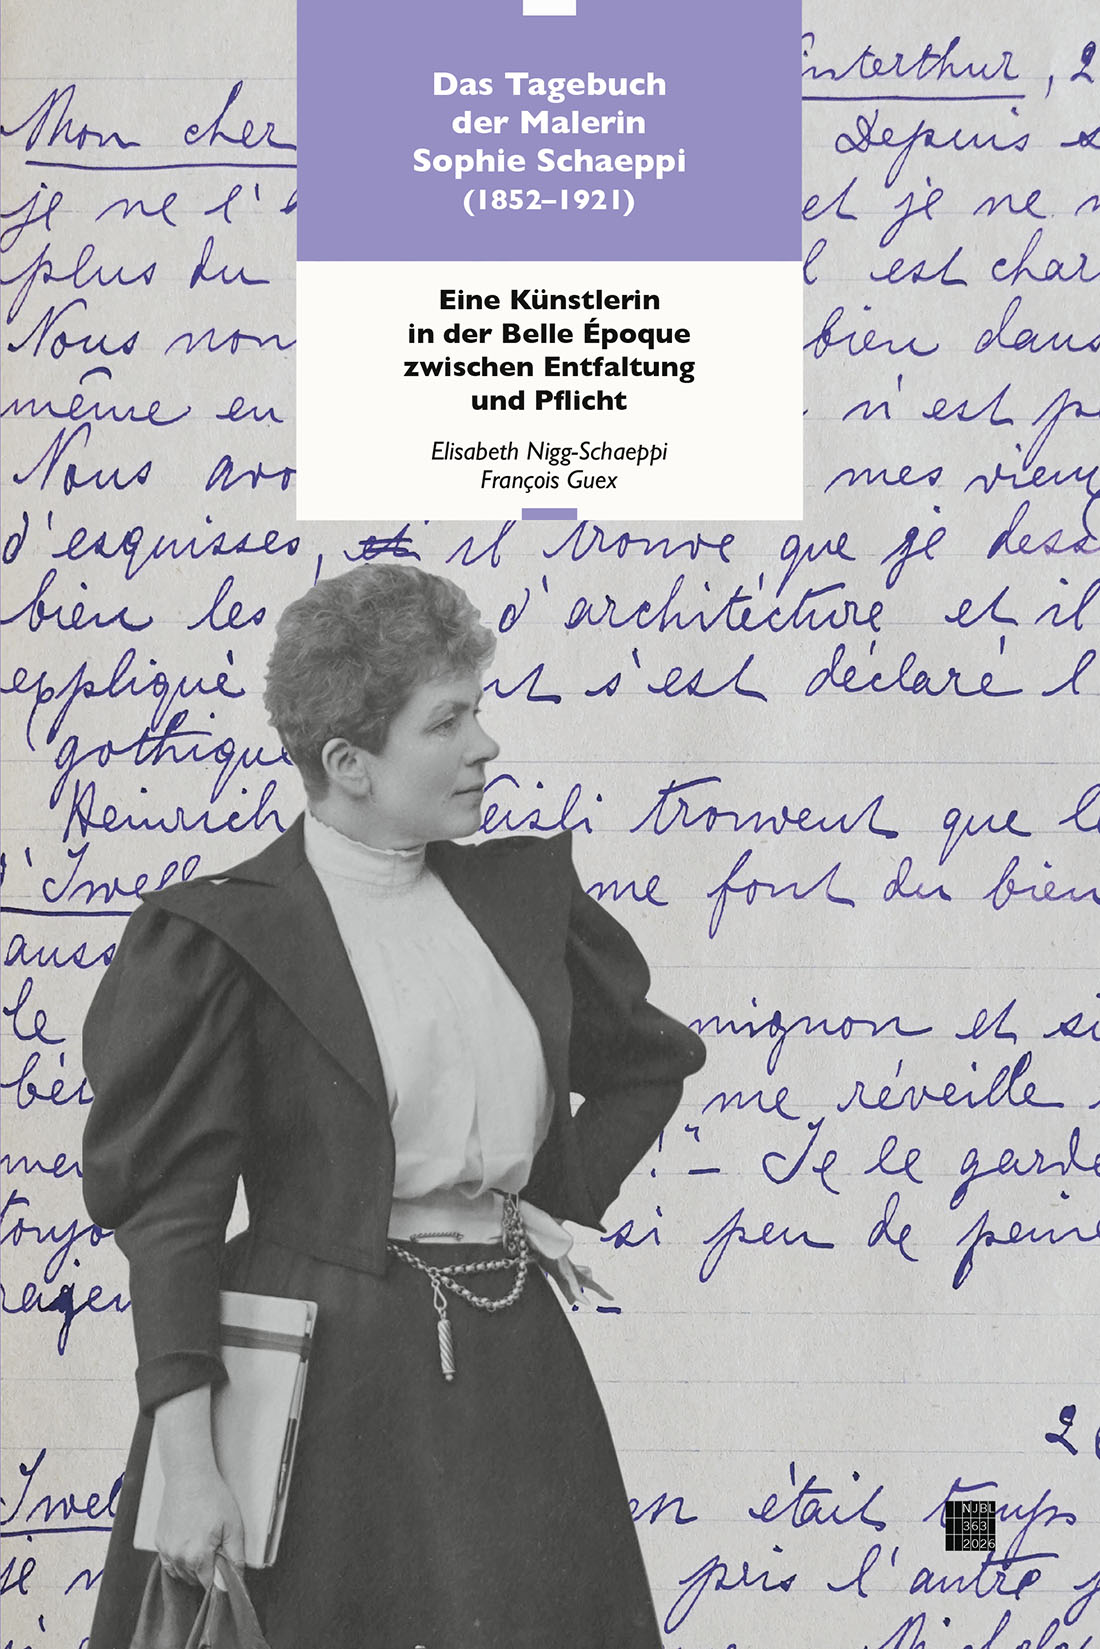 Das Tagebuch
der Malerin
Sophie Schaeppi
(1852–1921)
Eine Künstlerin
in der Belle Époque
zwischen Entfaltung
und Pflicht
Elisabeth Nigg-Schaeppi
François Guex
interthur, 2
Mon cher Depuis s
je ne l' et je ne
plus du est char
Nous non bien dans
même en n'est pe
Nous avo mes vieux
d'esquisses, et il trouve que je dess
bien les d'architecture et il
expliqué nt s'est déclaré l
gothique
Heinrich eisli trouvent que le
d'Iwell me font du bien
auss
le mignon et si
bér me réveille
mer !"– Je le garde
toujo si peu de peine
rager .–
2
Iwel en était temps
je n pris l'autre j
NJBL
363
2026